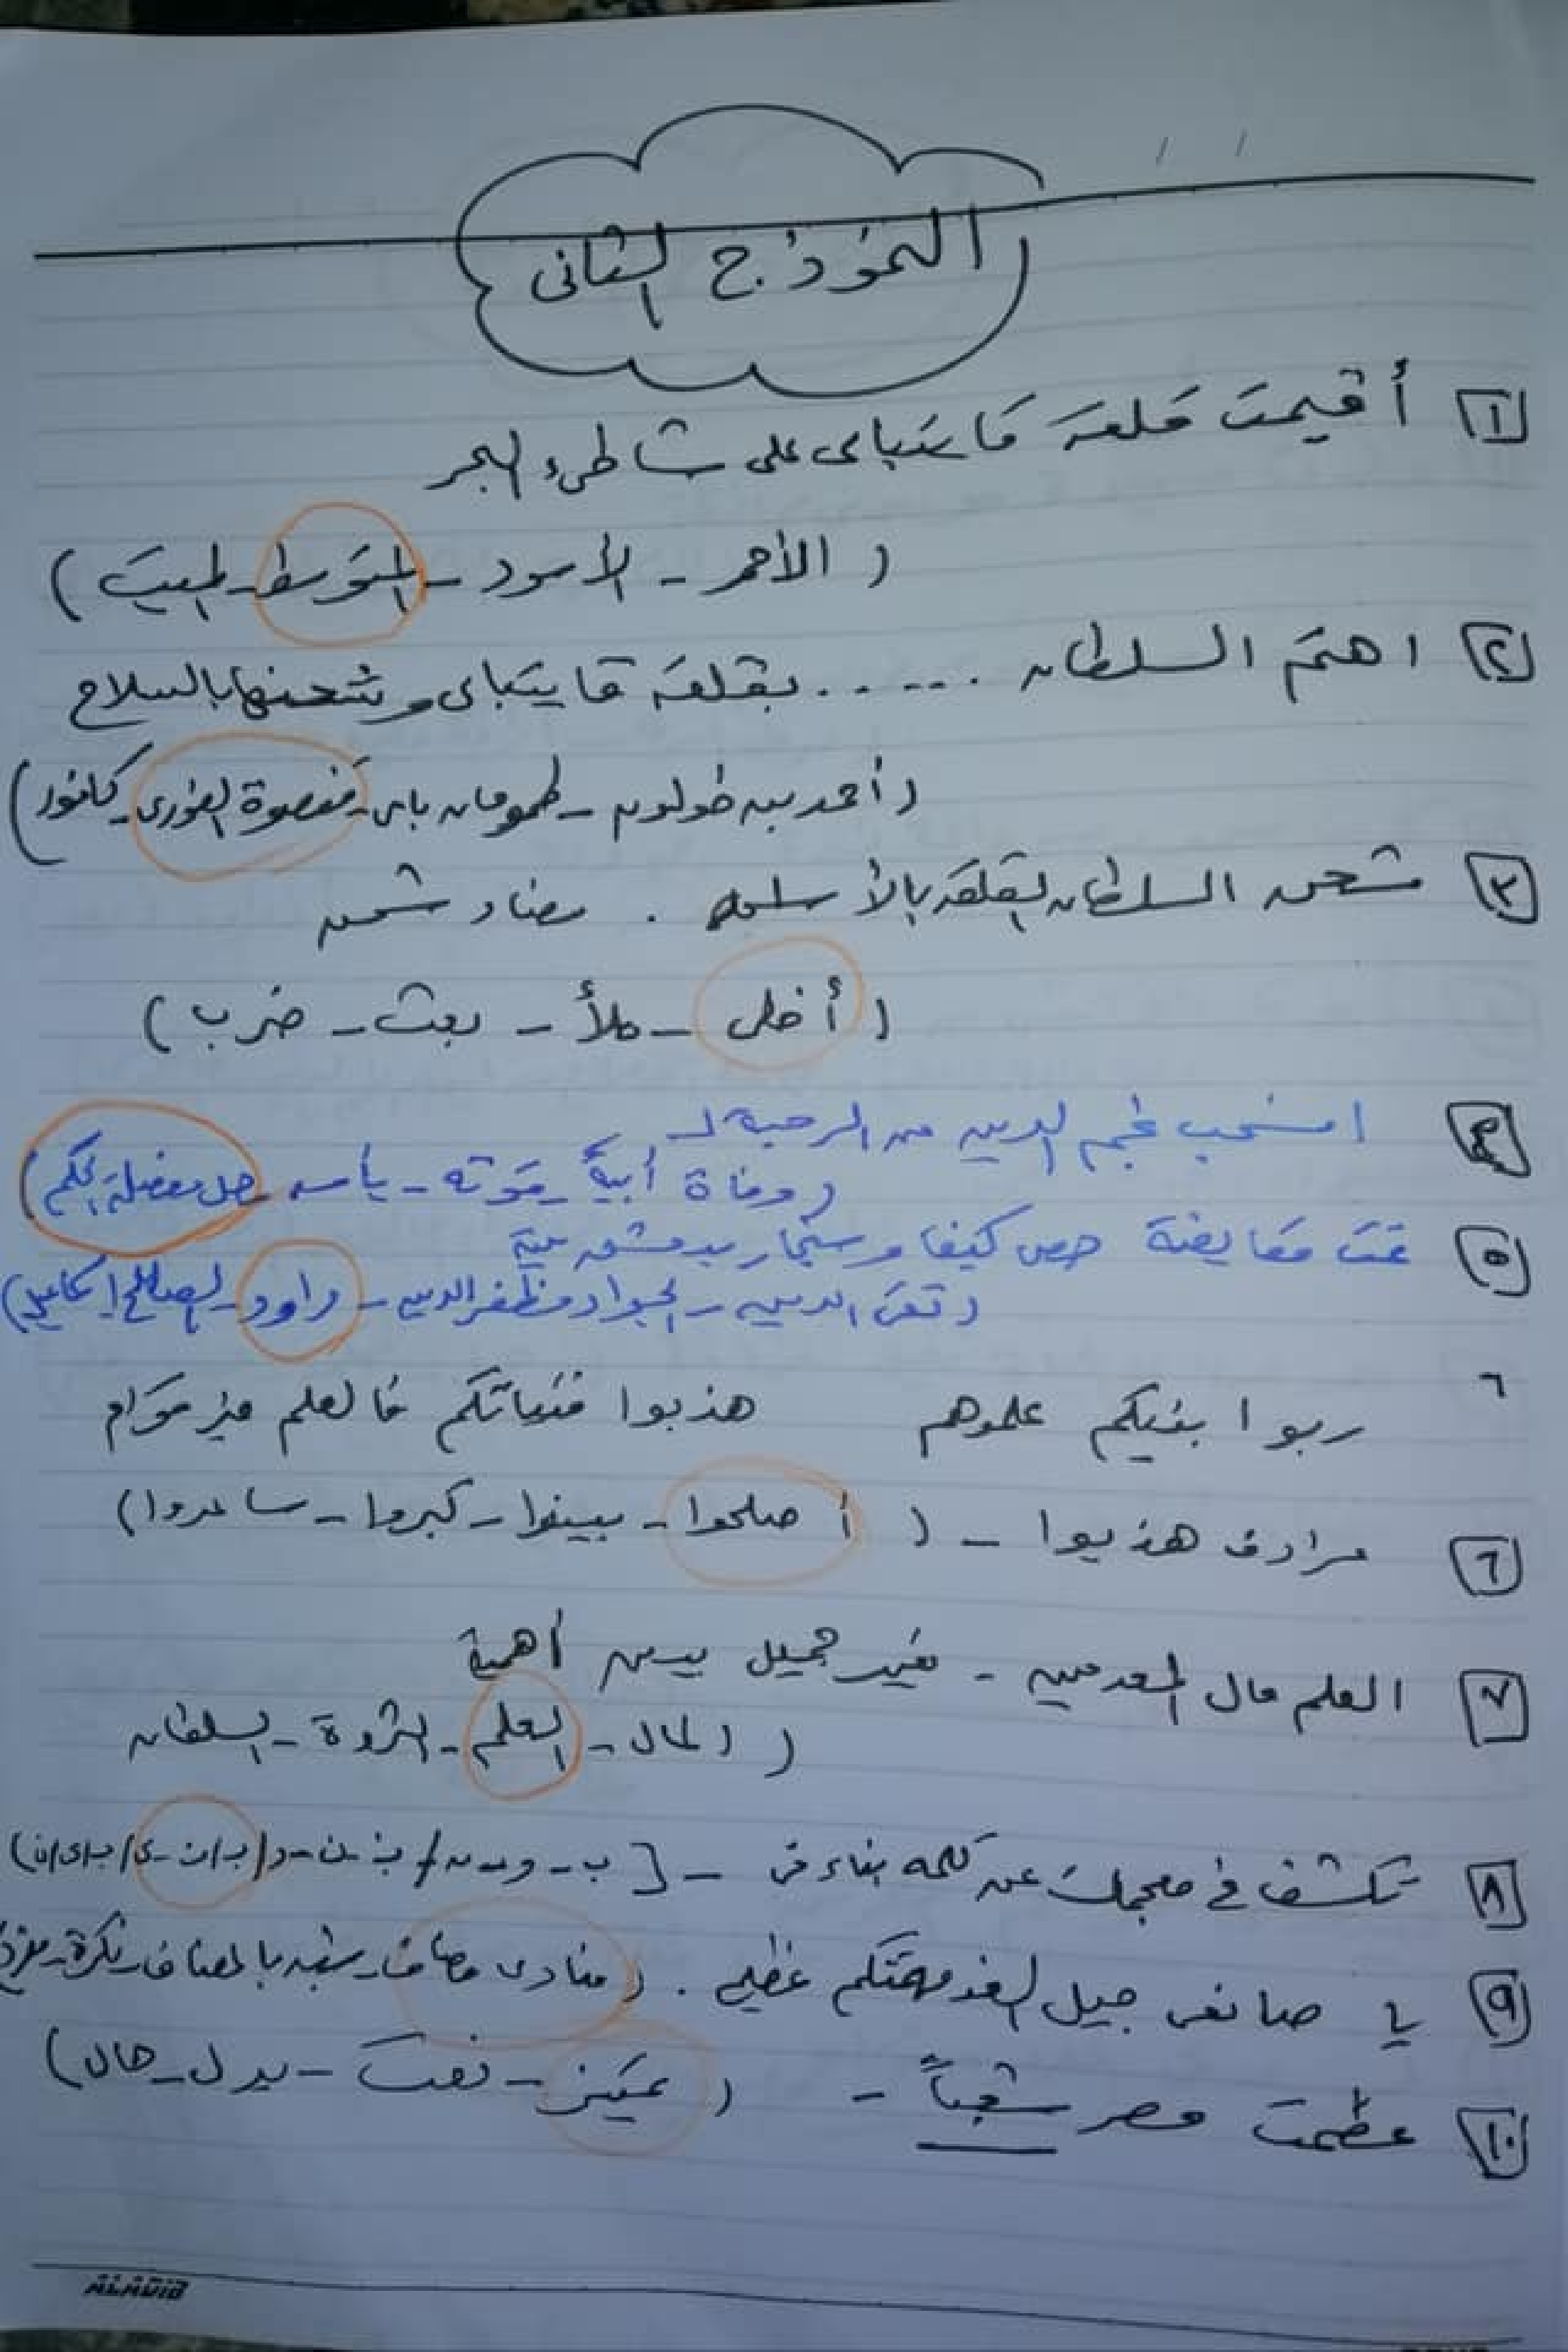 النموذج الثانى
١ أقيمت قلعة قايتباى على شاطىء البحر
( الأحمر - الأسود - المتوسط - الميت )
٢ اهتم السلطان ...... بقلعة قايتباى وشحنها بالسلاح
( أحمد بن طولون - طومان باى - قنصوة الغورى - كافور )
٣ شحن السلطان القلعة بالأسلحة . مضاد شحن
( أخلى - ملأ - بعث - ضرب )
٤ انسحب نجم الدين من الرحبة لـ
( وفاة أبية - موته - يأسه - حل معضلة الحكم )
٥ تمت مقايضة حصن كيفا وسنجار بدمشق
( تقى الدين - الجواد مظفر الدين - داود - الصالح إ )
٦ ربوا بنيكم علموهم هذبوا فتياتكم فالعلم خير قوام
٦ مرادف هذبوا - ( أصلحوا - بينوا - كبروا - ساعدوا )
٧ العلم مال المعدمين - تعبير جميل يبين أهمية
( المال - العلم - الثروة - السلطان
٨ تكشف في معجمك عن كلمه بناء فى - [ ب - و - ن / ب - ن - و / ب - ن - ى / ب / ى / ن )
٩ يا صانعى جيل الغد مهمتكم عظيمة . ( منادى مضاف - شبه بالمضاف - نكرة -
١٠ عظمت مصر شعباً - ( تمييز - نعت - بدل - حال )
ALADIB